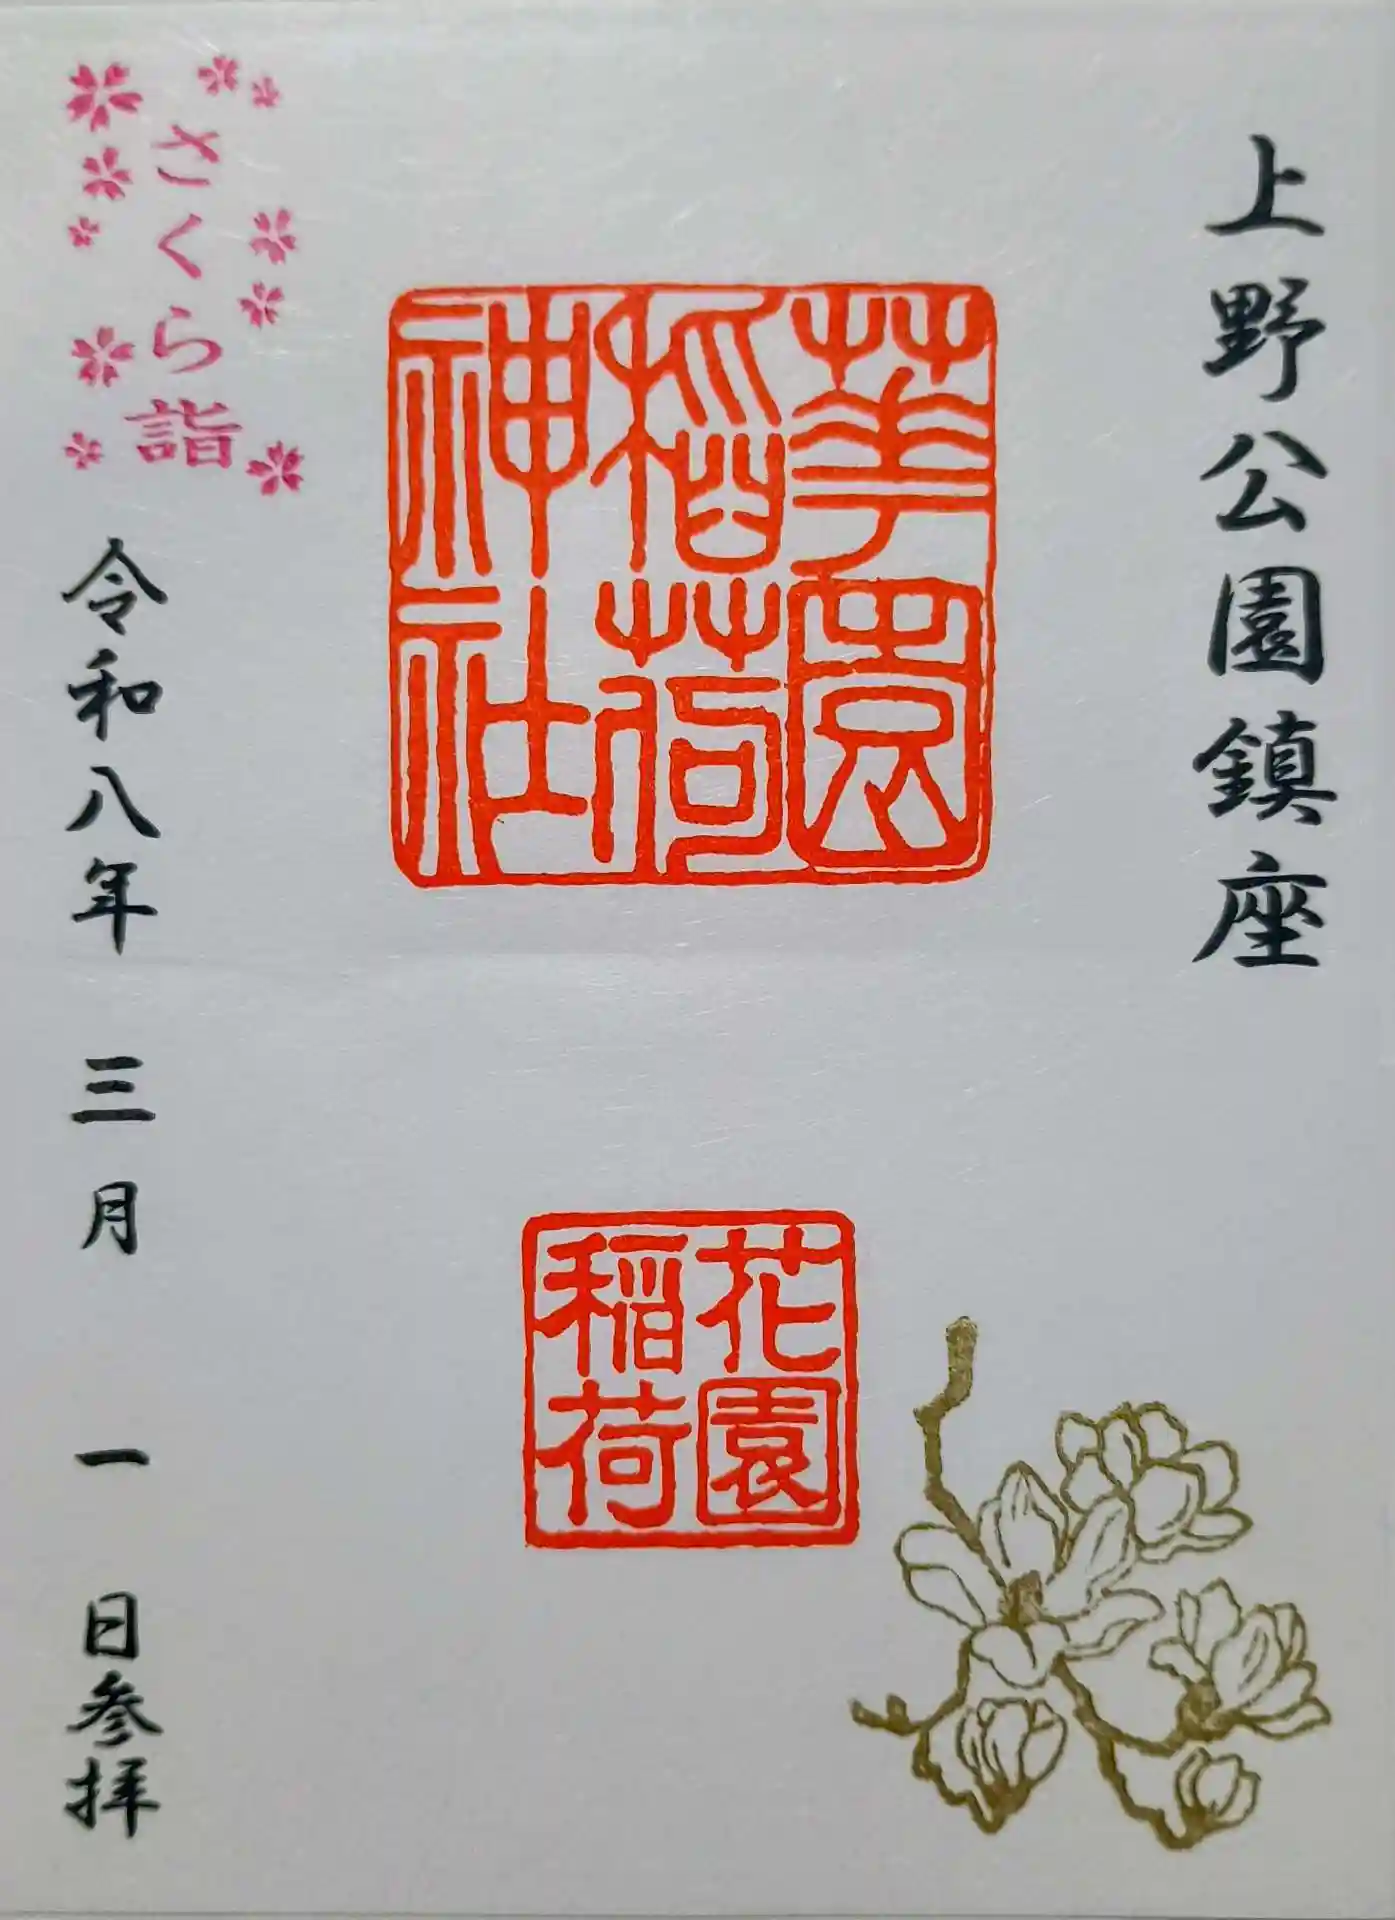 上野公園鎮座
華園
稲荷
神社
花園
稲荷
さくら詣
令和八年 三月 一日参拝